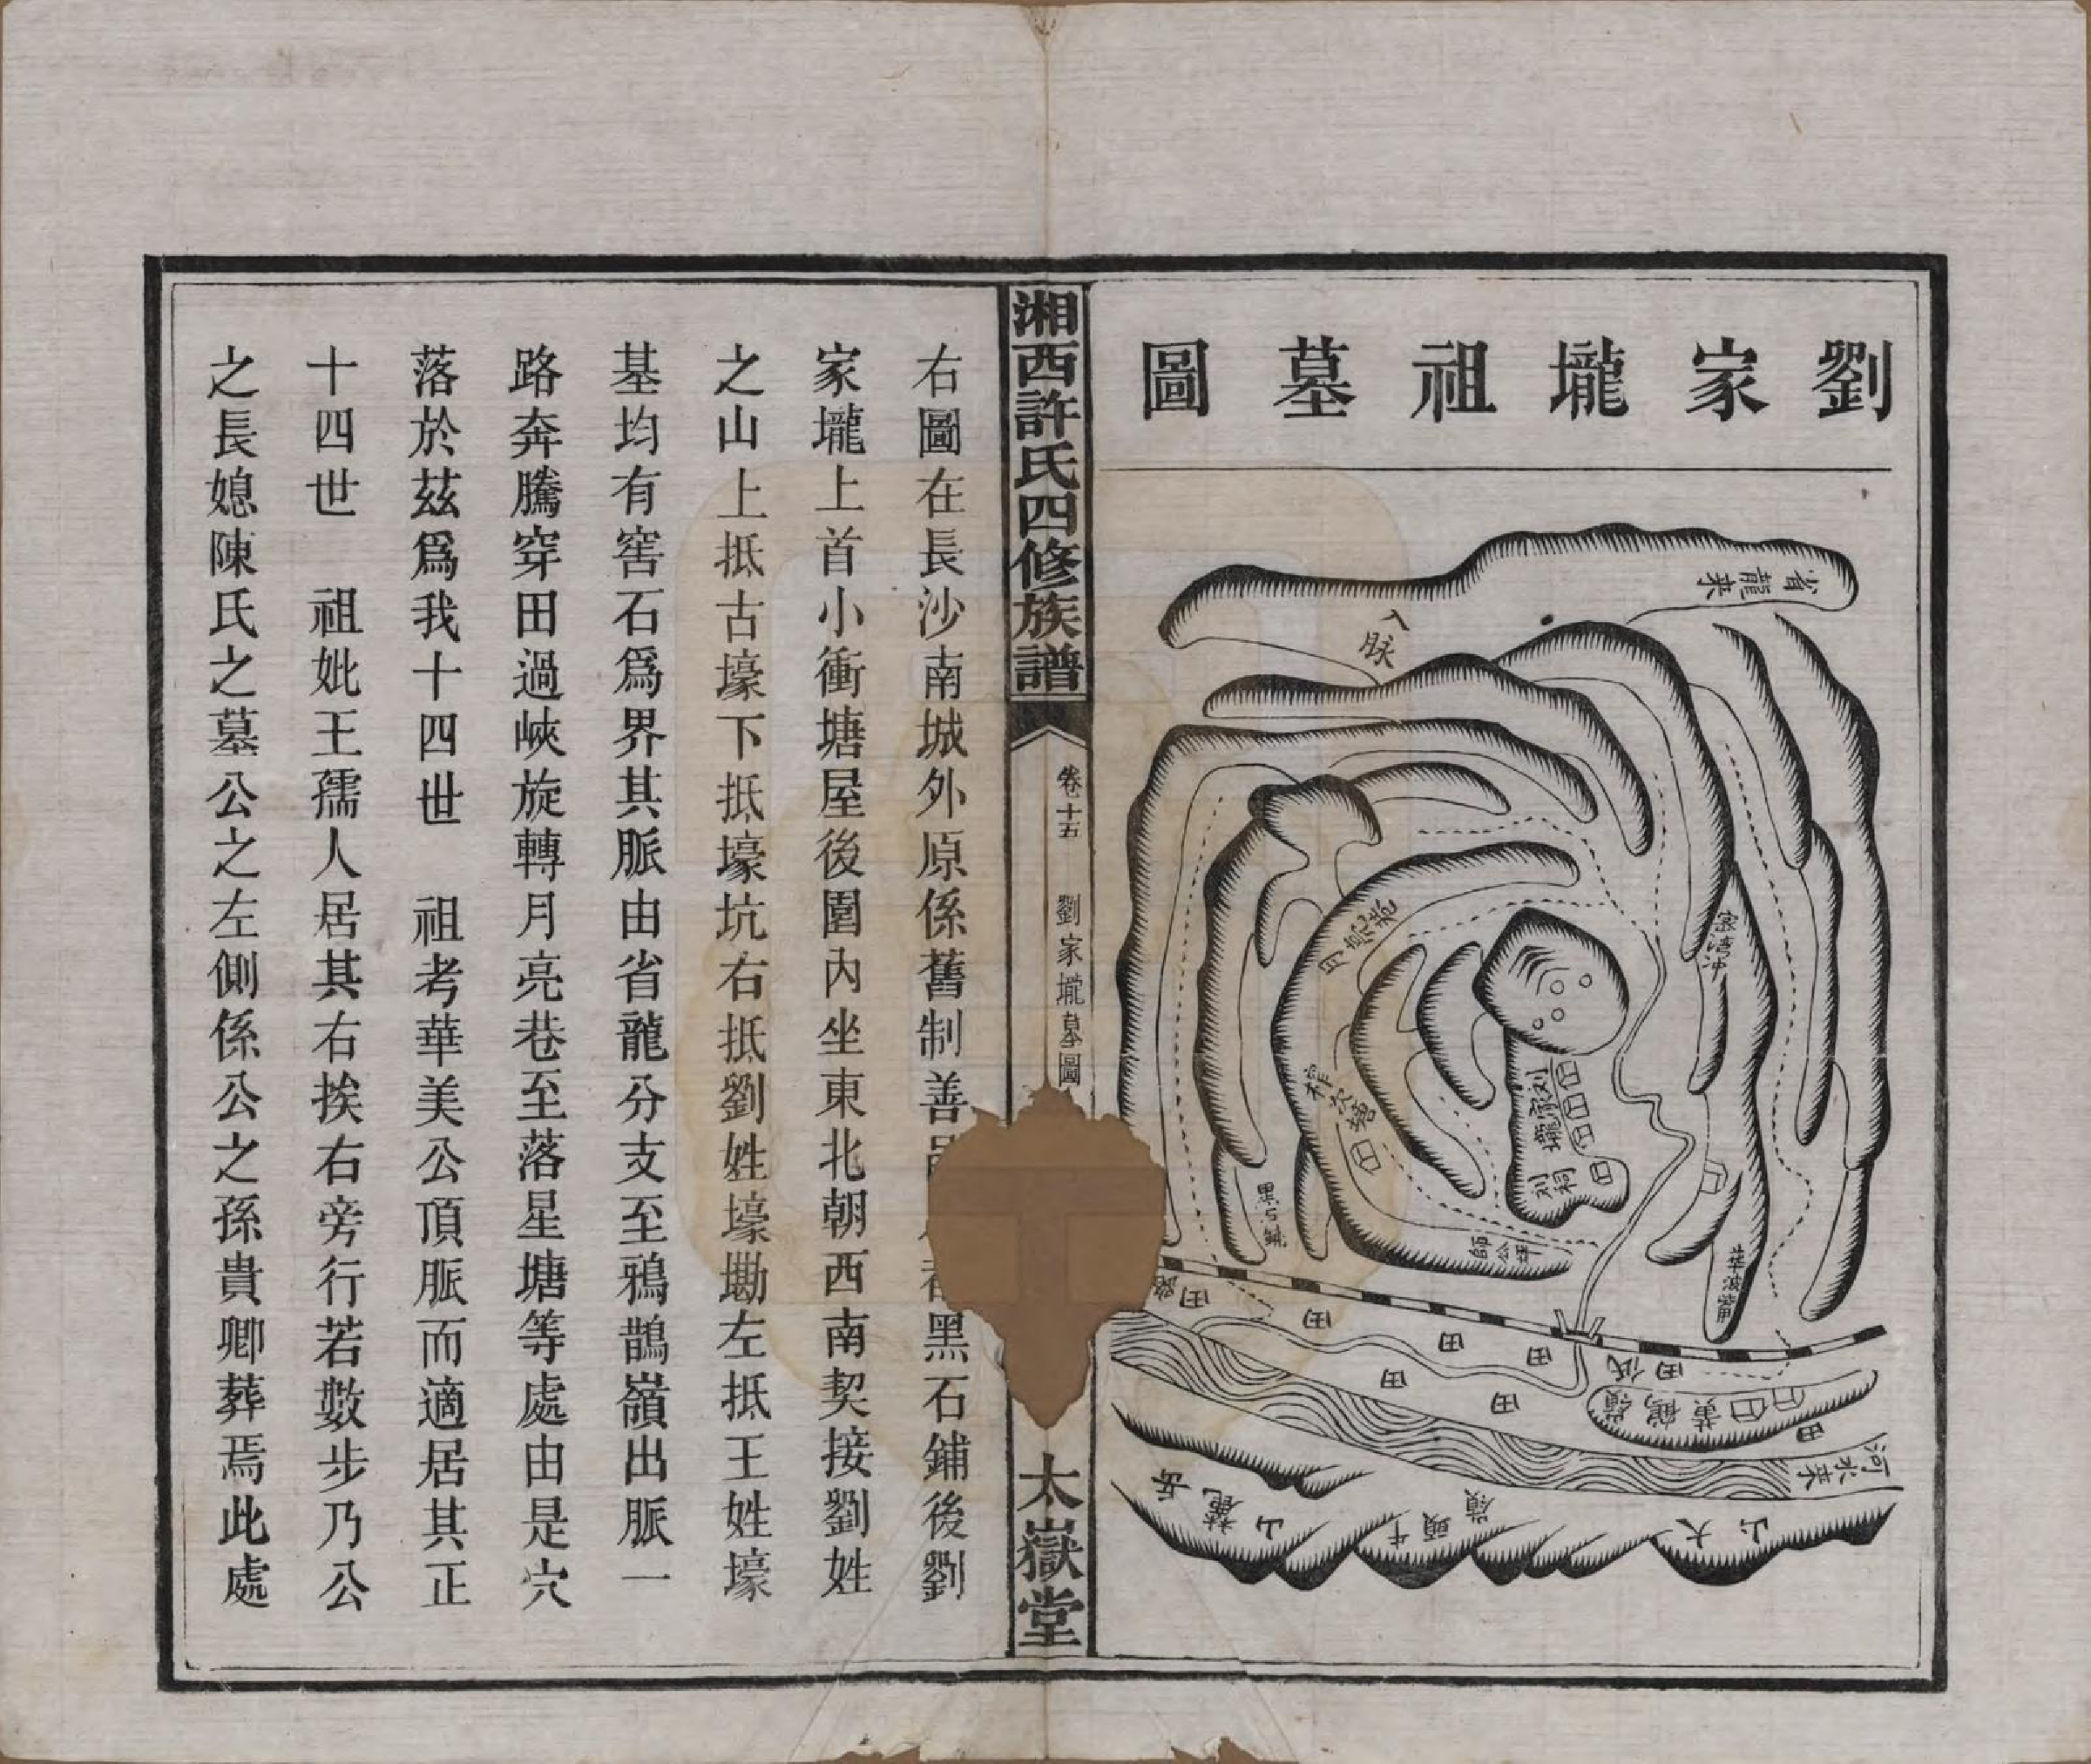 劉家壠祖墓圖
省龍来
入脉
月亮巷
家湾冲
刘家壠
刘祠
黑石
師公坪
華波嘴
田
田
田
田
田
田
田
田
黃鶴嶺
河水来
岳麓山
牛頭嶺
大山
湘西許氏四修族譜
卷十五
劉家壠墓圖
太嶽堂
右圖在長沙南城外原係舊制善黑石鋪後劉
家壠上首小衝塘屋後園內坐東北朝西南契接劉姓
之山上抵古壕下抵壕坑右抵劉姓壕勘左抵王姓壕
基均有窖石爲界其脈由省龍分支至鴉鵲嶺出脈一
路奔騰穿田過峽旋轉月亮巷至落星塘等處由是穴
落於茲爲我十四世　祖考華美公頂脈而適居其正
十四世　祖妣王孺人居其右挨右旁行若數步乃公
之長媳陳氏之墓公之左側係公之孫貴卿葬焉此處